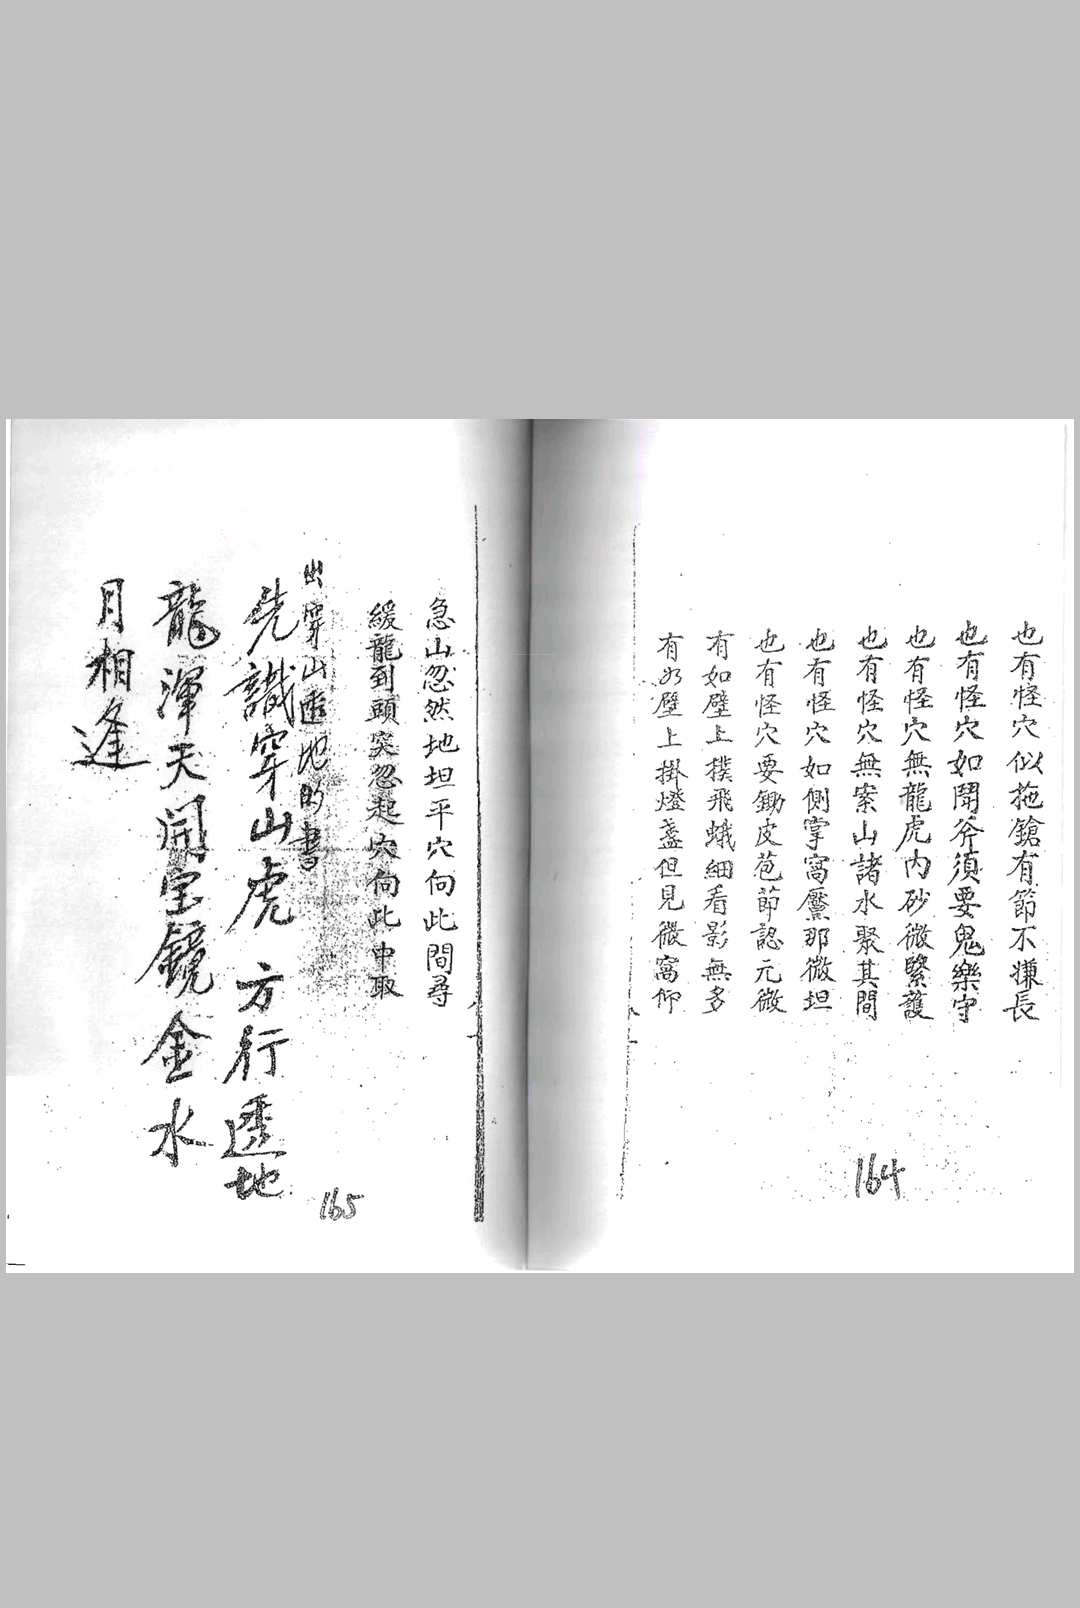 也有怪穴似拖鎗有節不慊長
也有怪穴如鬧斧須要鬼樂守
也有怪穴無龍虎內砂微緊護
也有怪穴無案山諸水聚其間
也有怪穴如側掌窩靨那微坦
也有怪穴要鋤皮苞節認元微
有如壁上撲飛蛾細看影無多
有如壁上掛燈盞但見微窩仰
164
急山忽然地坦平穴向此間尋
緩龍到頭突忽起穴向此中取
出穿山透地的書
先識穿山虎 方行透地
龍渾天開宝鏡金水
月相逢
165